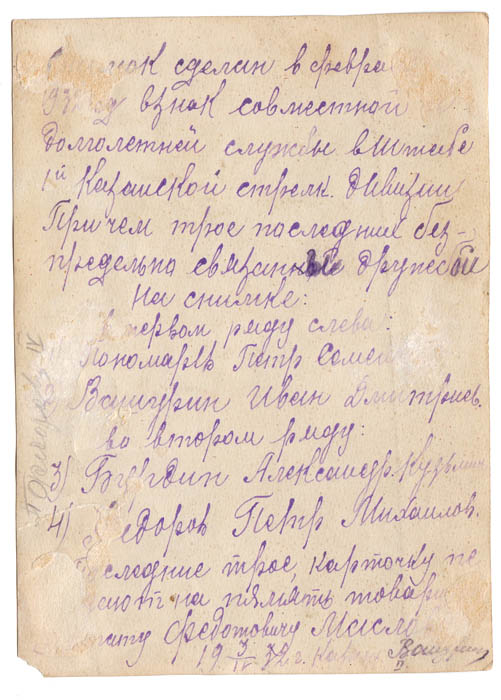 сделан в февра
взнак совместной
долголетней службы в Штабе
1й Казанской стрелк. дивизии
Причем трое последние без-
предельно связанные дружбой
На снимке:
в первом ряду слева:
Пономарев Петр Семен
Вашурин Иван Дмитриев.
во втором ряду:
3) Александр Кузьмич
4) Федоров Петр Михайлов.
следние трое, карточку пе
дают на память товари
Федотовичу Масло
19 3/IV 32 г.